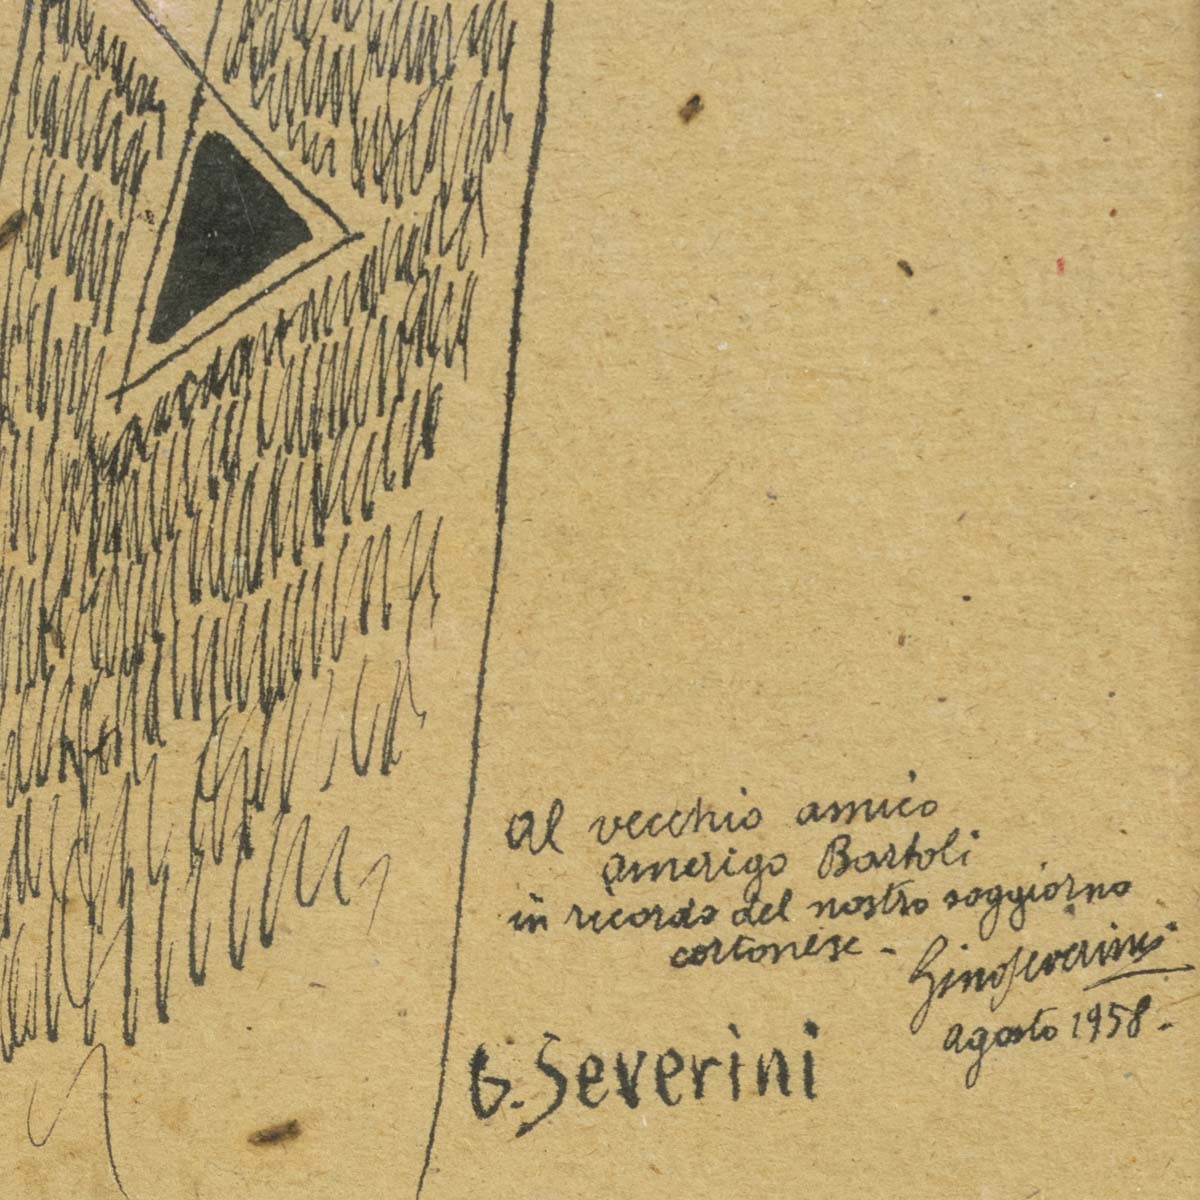 Al vecchio amico
Amerigo Bartoli
in ricordo del nostro soggiorno
cortonese -
Gino Severini
agosto 1958 -
G. Severini